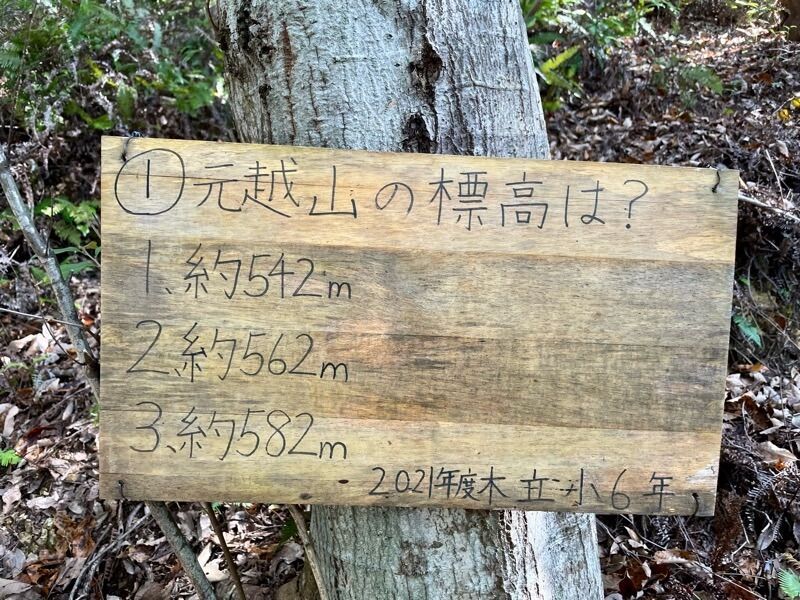 ①元越山の標高は?
1、約542m
2、約562m
3、約582m
2021年度木立小6年